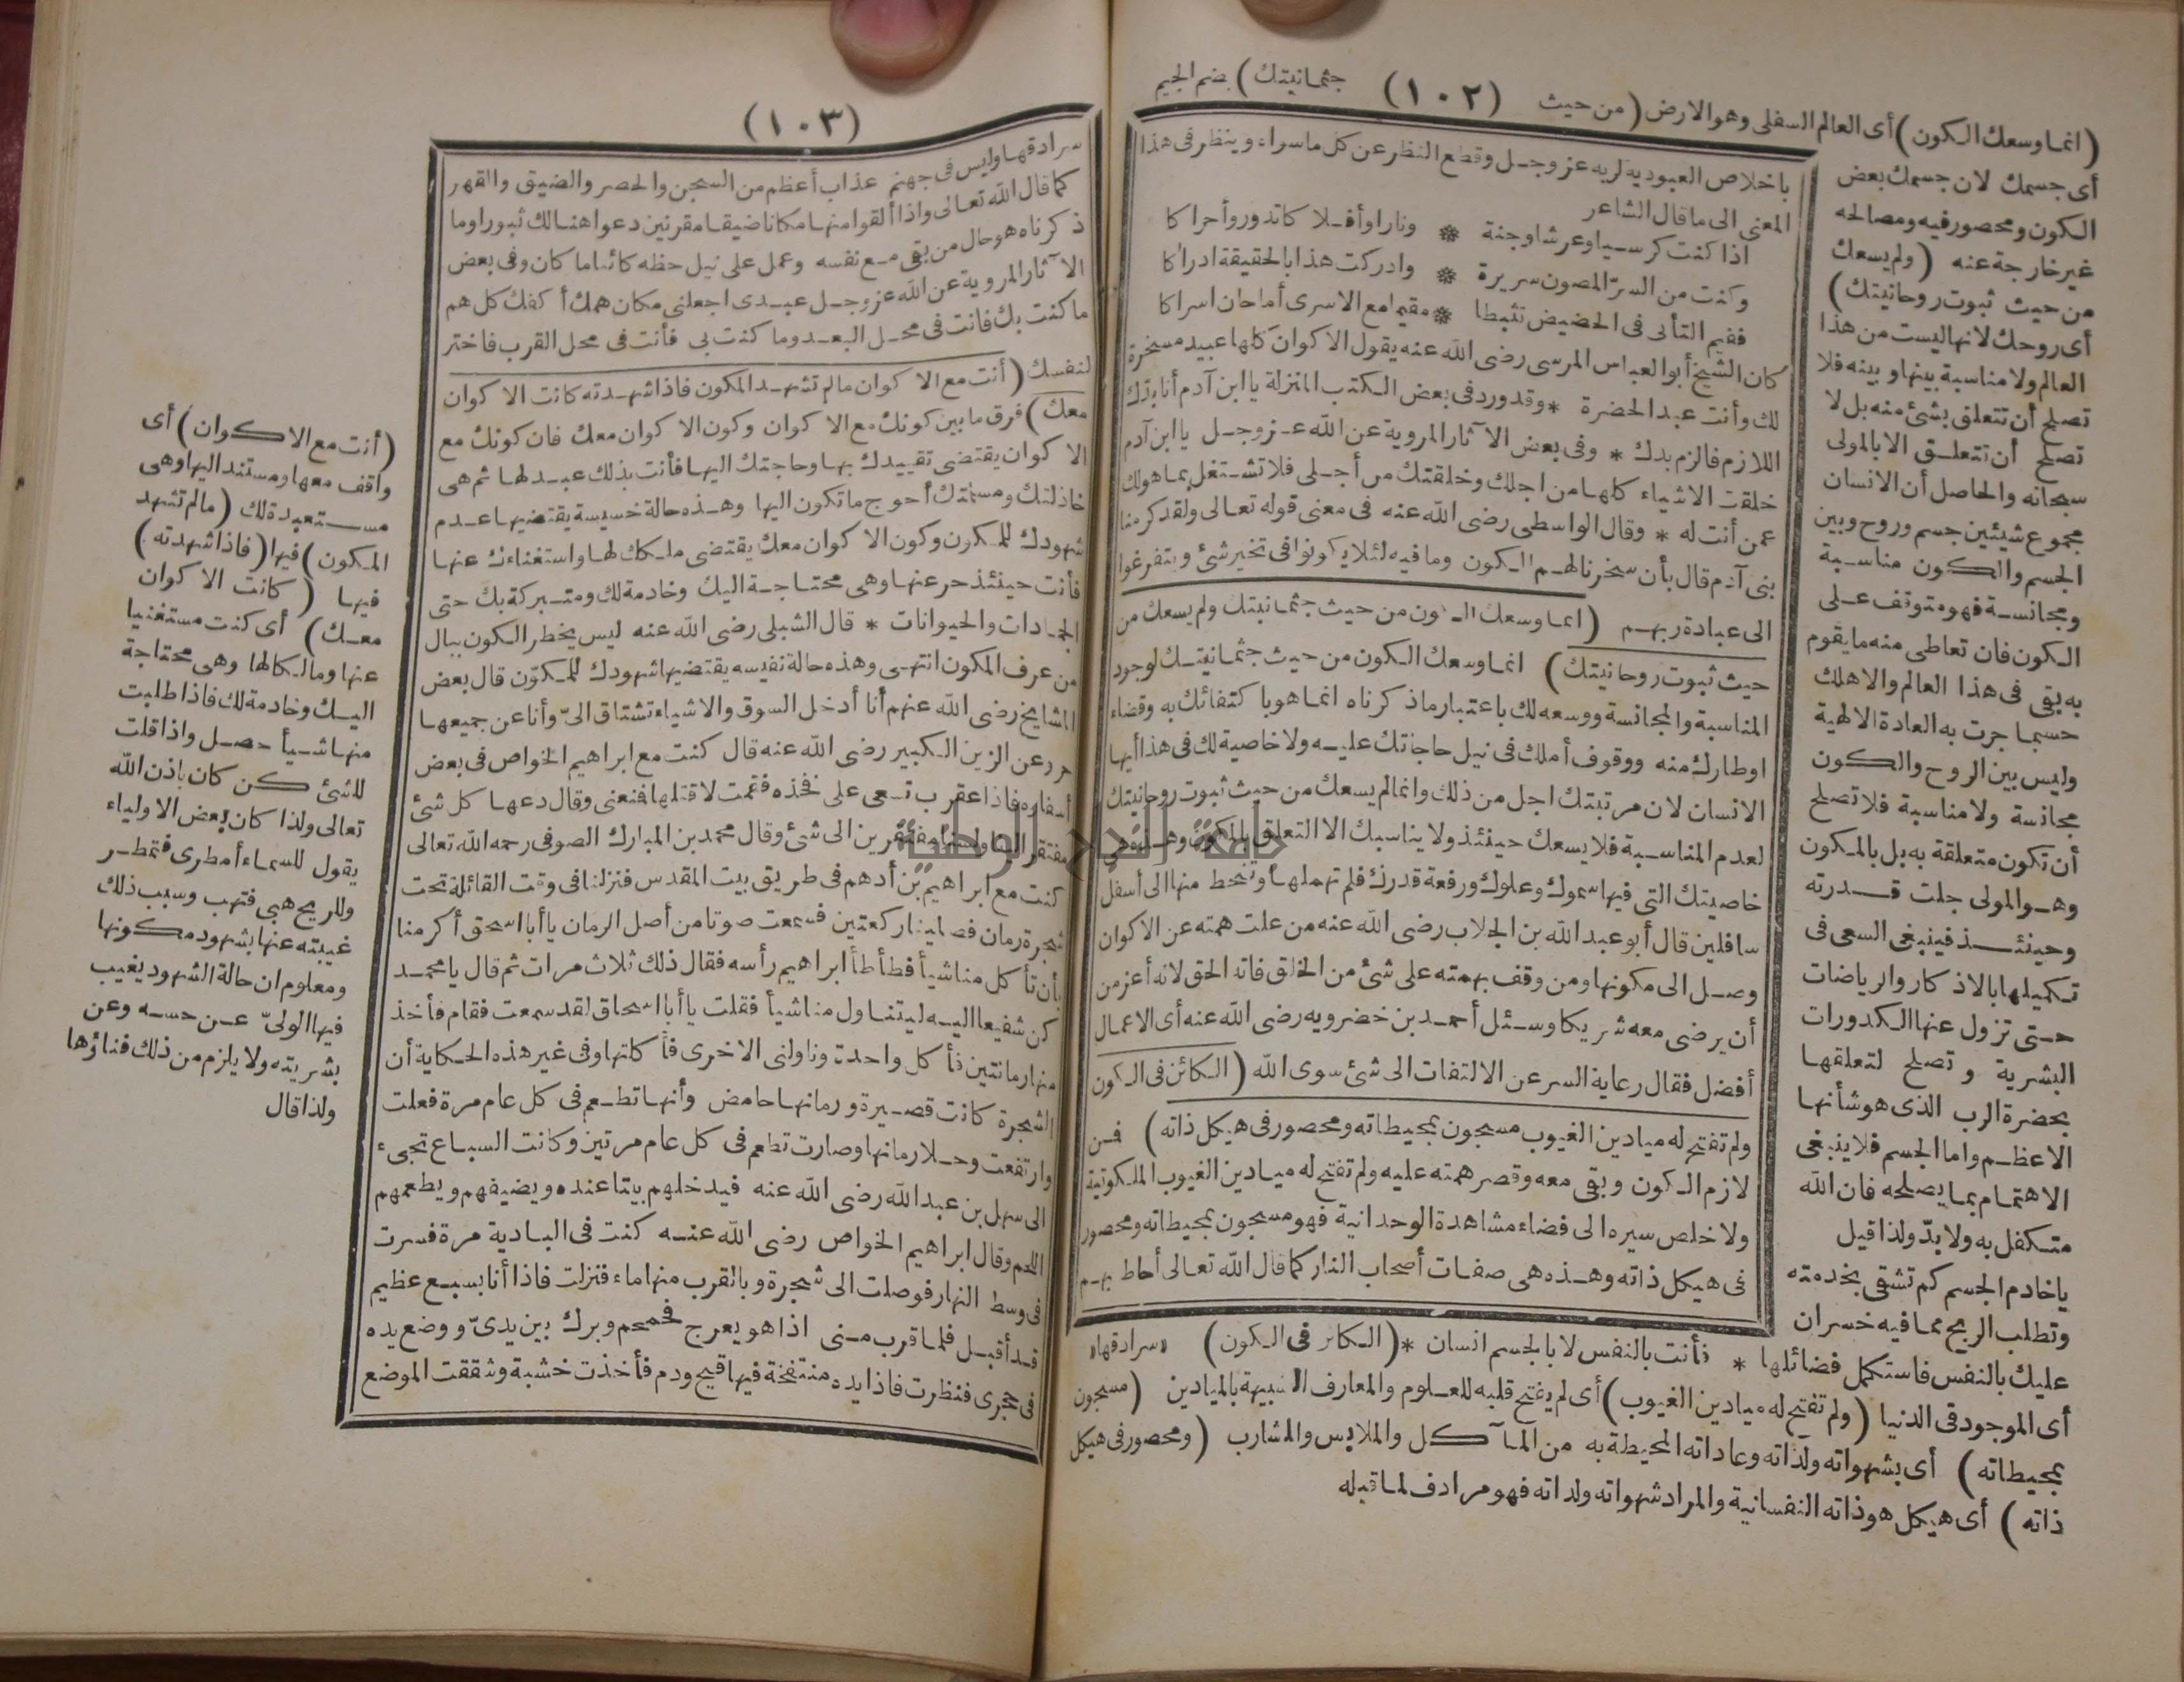 (١٠٢)
(انما وسعك الكون) أى العالم السفلى وهو الارض (من حيث جثمانيتك) بضم الجيم
أى جسمك لان جسمك بعض
الكون ومحصور فيه ومصالحه
غير خارجة عنه (ولم يسعك
من حيث ثبوت روحانيتك)
أى روحك لانها ليست من هذا
العالم ولا مناسبة بينها وبينه فلا
تصلح أن تتعلق بشئ منه بل لا
تصلح أن تتعلق الا بالمولى
سبحانه والحاصل أن الانسان
مجموع شيئين جسم وروح وبين
الجسم والكون مناسبة
ومجانسة فهو متوقف على
الكون فان تعاطى منه ما يقوم
به بقى فى هذا العالم والا هلك
حسبما جرت به العادة الالهية
وليس بين الروح والكون
مجانسة ولا مناسبة فلا تصلح
أن تكون متعلقة به بل بالمكون
وهو المولى جلت قدرته
وحينئذ فينبغى السعى فى
تكميلها بالاذكار والرياضات
حتى تزول عنها الكدورات
البشرية وتصلح لتعلقها
بحضرة الرب الذى هو شأنها
الاعظم واما الجسم فلا ينبغى
الاهتمام بما يصلحه فان الله
متكفل به ولا بدّ ولذا قيل
يا خادم الجسم كم تشقى بخدمته
وتطلب الربح مما فيه خسران
عليك بالنفس فاستكمل فضائلها * فأنت بالنفس لا بالجسم انسان * (الكائن فى الكون)
أى الموجود فى الدنيا (ولم تفتح له ميادين الغيوب) أى لم يفتح قلبه للعلوم والمعارف الشبيهة بالميادين (مسجون
بمحيطاته) أى بشهواته ولذاته وعاداته المحيطة به من المآكل والملابس والمشارب (ومحصور فى هيكل
ذاته) أى هيكل هو ذاته النفسانية والمراد شهواته ولذاته فهو مرادف لما قبله
باخلاص العبودية لربه عز وجل وقطع النظر عن كل ما سراه وينظر فى هذا
المعنى الى ما قال الشاعر
اذا كنت كرسيا وعرشا وجنة * ونارا وأفلاكا تدور وأحراكا
وكنت من السرّ المصون سريرة * وادركت هذا بالحقيقة ادراكا
ففيم التأنى فى الحضيض تثبطا * مقيما مع الاسرى أما حان اسراكا
كان الشيخ أبو العباس المرسى رضى الله عنه يقول الاكوان كلها عبيد مسخرة
لك وأنت عبد الحضرة * وقد ورد فى بعض الكتب المنزلة يا ابن آدم أنا بدّك
اللازم فالزم بدك * وفى بعض الآثار المروية عن الله عز وجل يا ابن آدم
خلقت الاشياء كلها من اجلك وخلقتك من أجلى فلا تشتغل بما هو لك
عمن أنت له * وقال الواسطى رضى الله عنه فى معنى قوله تعالى ولقد كرمنا
بنى آدم قال بأن سخرنا لهم الكون وما فيه لئلا يكونوا فى تخير شئ ويتفرغوا
الى عبادة ربهم (انما وسعك الكون من حيث جثمانيتك ولم يسعك من
حيث ثبوت روحانيتك) انما وسعك الكون من حيث جثمانيتك لوجود
المناسبة والمجانسة ووسعه لك باعتبار ما ذكرناه انما هو باكتفائك به وقضاء
اوطارك منه ووقوف أملك فى نيل حاجاتك عليه ولا خاصية لك فى هذا أيها
الانسان لان مرتبتك اجل من ذلك وانما لم يسعك من حيث ثبوت روحانيتك
لعدم المناسبة فلا يسعك حينئذ ولا يناسبك الا التعلق بالمكون وهذه هى
خاصيتك التى فيها سموك وعلوك ورفعة قدرك فلم تهملها وتنحط منها الى أسفل
سافلين قال أبو عبد الله بن الجلاب رضى الله عنه من علت همته عن الاكوان
وصل الى مكونها ومن وقف بهمته على شئ من الخلق فاته الحق لانه أعز من
أن يرضى معه شريكا وسئل أحمد بن خضرويه رضى الله عنه أى الاعمال
أفضل فقال رعاية السر عن الالتفات الى شئ سوى الله (الكائن فى الكون
ولم تفتح له ميادين الغيوب مسجون بمحيطاته ومحصور فى هيكل ذاته) فمن
لازم الكون وبقى معه وقصر همته عليه ولم تفتح له ميادين الغيوب الملكوتية
ولا خلص سيره الى فضاء مشاهدة الوحدانية فهو مسجون بمحيطاته ومحصور
فى هيكل ذاته وهذه هى صفات أصحاب النار كما قال الله تعالى أحاط بهم
سرادقها
(١٠٣)
سرادقها وليس فى جهنم عذاب أعظم من السجن والحصر والضيق والقهر
كما قال الله تعالى واذا ألقوا منها مكانا ضيقا مقرنين دعوا هنالك ثبورا وما
ذكرناه هو حال من بقى مع نفسه وعمل على نيل حظه كائنا ما كان وفى بعض
الآثار المروية عن الله عز وجل عبدى اجعلنى مكان همك أكفك كل هم
ما كنت بك فانت فى محل البعد وما كنت بى فأنت فى محل القرب فاختر
لنفسك (أنت مع الاكوان ما لم تشهد المكون فاذا شهدته كانت الاكوان
معك) فرق ما بين كونك مع الاكوان وكون الاكوان معك فان كونك مع
الاكوان يقتضى تقييدك بها وحاجتك اليها فأنت بذلك عبد لها ثم هى
خاذلتك ومسلمتك أحوج ما تكون اليها وهذه حالة خسيسة يقتضيها عدم
شهودك للمكون وكون الاكوان معك يقتضى ملكك لها واستغناءك عنها
فأنت حينئذ حر عنها وهى محتاجة اليك وخادمة لك ومتبركة بك حتى
الجمادات والحيوانات * قال الشبلى رضى الله عنه ليس يخطر الكون ببال
من عرف المكون انتهى وهذه حالة نفيسه يقتضيها شهودك للمكوّن قال بعض
المشايخ رضى الله عنهم أنا أدخل السوق والاشياء تشتاق الىّ وأنا عن جميعها
حر وعن الزين الكبير رضى الله عنه قال كنت مع ابراهيم الخواص فى بعض
أسفاره فاذا عقرب تسعى على فخذه فقمت لاقتلها فمنعنى وقال دعها كل شئ
مفتقر الينا ولسنا مفتقرين الى شئ وقال محمد بن المبارك الصوفى رحمه الله تعالى
كنت مع ابراهيم بن أدهم فى طريق بيت المقدس فنزلنا فى وقت القائلة تحت
شجرة رمان فصلينا ركعتين فسمعت صوتا من أصل الرمان يا أبا اسحق أكرمنا
بأن تأكل منا شيأ فطأطأ ابراهيم رأسه فقال ذلك ثلاث مرات ثم قال يا محمد
كن شفيعا اليه ليتناول منا شيأ فقلت يا أبا اسحاق لقد سمعت فقام فأخذ
منها رمانتين فأكل واحدة وناولنى الاخرى فأكلتها وفى غير هذه الحكاية أن
الشجرة كانت قصيرة ورمانها حامض وأنها تطعم فى كل عام مرة فعلت
وارتفعت وحلا رمانها وصارت تطعم فى كل عام مرتين وكانت السباع تجىء
الى سهل بن عبد الله رضى الله عنه فيدخلهم بيتا عنده ويضيفهم ويطعمهم
اللحم وقال ابراهيم الخواص رضى الله عنه كنت فى البادية مرة فسرت
فى وسط النهار فوصلت الى شجرة وبالقرب منها ماء فنزلت فاذا أنا بسبع عظيم
قد أقبل فلما قرب منى اذا هو يعرج فحمحم وبرك بين يدىّ ووضع يده
فى حجرى فنظرت فاذا يده منتفخة فيها قيح ودم فأخذت خشبة وشققت الموضع
(أنت مع الاكوان) أى
واقف معها ومستند اليها وهى
مستعبدة لك (ما لم تشهد
المكون) فيها (فاذا شهدته)
فيها (كانت الاكوان
معك) أى كنت مستغنيا
عنها ومالكا لها وهى محتاجة
اليك وخادمة لك فاذا طلبت
منها شيأ حصل واذا قلت
للشئ كن كان باذن الله
تعالى ولذا كان بعض الاولياء
يقول للسماء أمطرى فتمطر
وللريح هبى فتهب وسبب ذلك
غيبته عنها بشهود مكونها
ومعلوم ان حالة الشهود يغيب
فيها الولىّ عن حسه وعن
بشريته ولا يلزم من ذلك فناؤها
ولذا قال
جامعة النجاح الوطنية